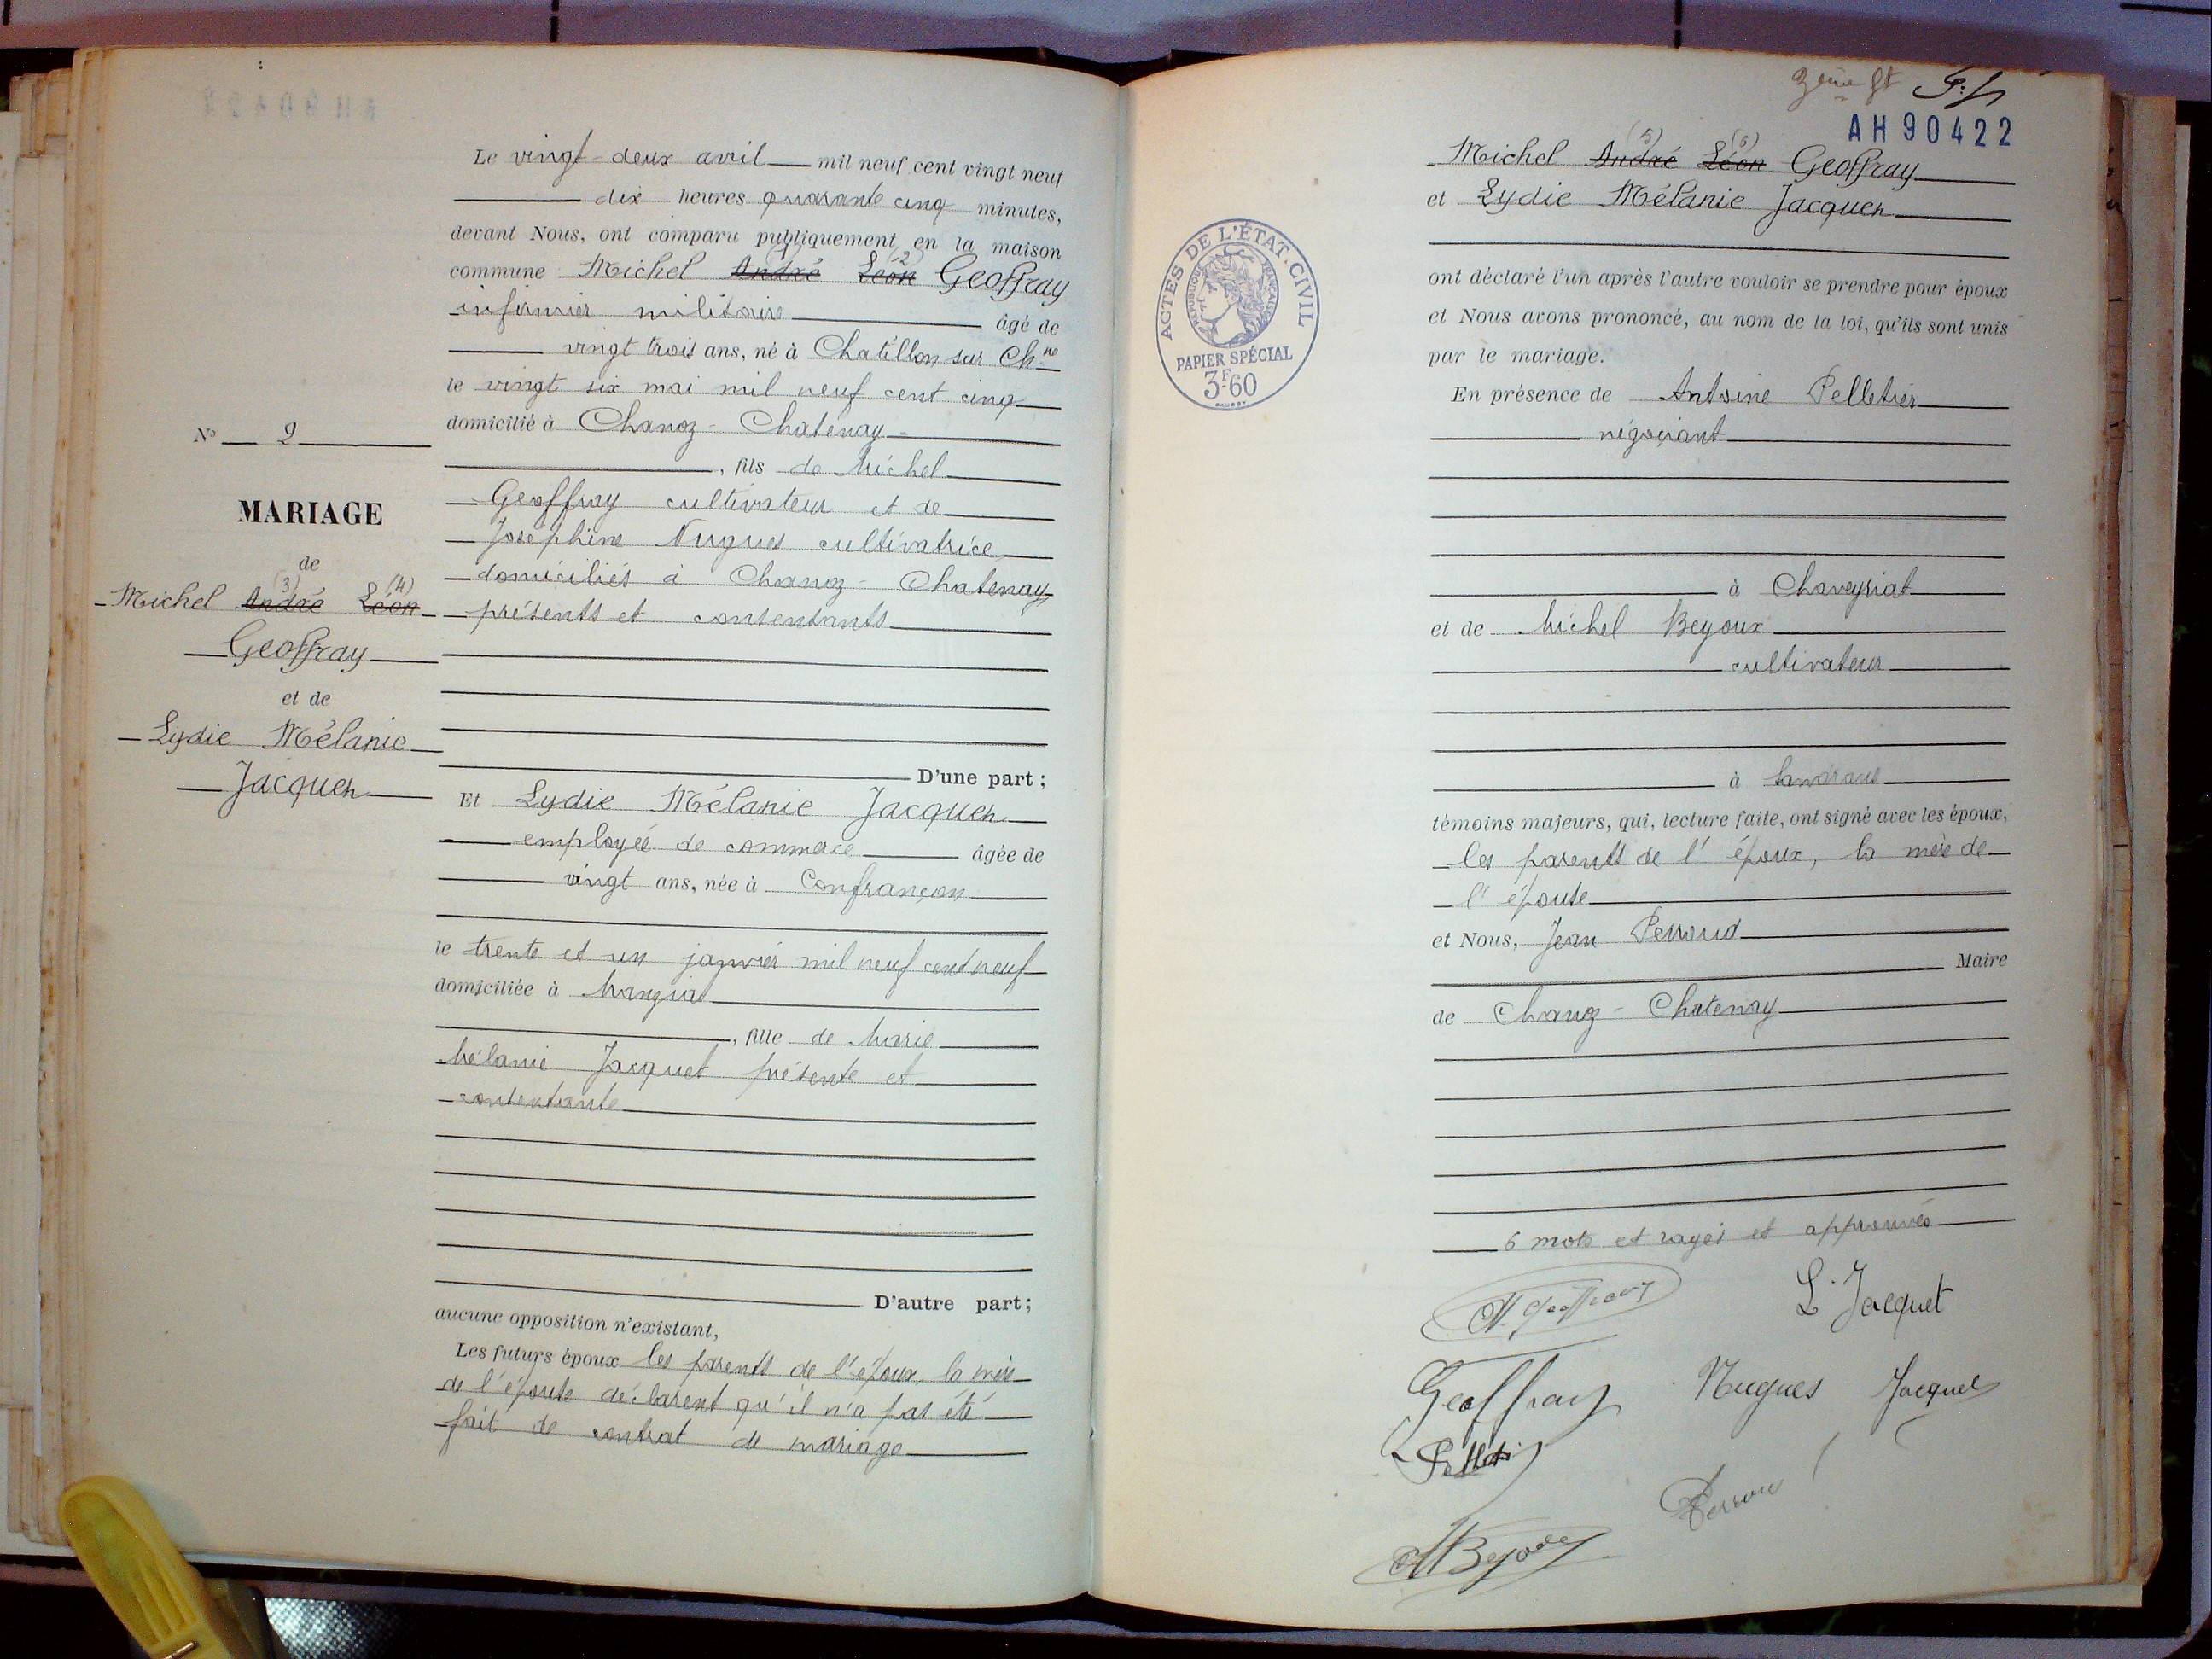 N° 2
MARIAGE
de
Michel André (3) Léon (4)
Geoffray
et de
Lydie Mélanie
Jacquet
Le vingt-deux avril mil neuf cent vingt neuf
dix heures quarante cinq minutes,
devant Nous, ont comparu publiquement en la maison
commune Michel André Léon (2) Geoffray
infirmier militaire âgé de
vingt trois ans, né à Chatillon sur Chne
le vingt six mai mil neuf cent cinq
domicilié à Chanoz-Chatenay
, fils de Michel
Geoffray cultivateur et de
Joséphine Nugues cultivatrice
domiciliés à Chanoz-Chatenay
présents et consentants
D'une part ;
Et Lydie Mélanie Jacquet
employée de commerce âgée de
vingt ans, née à Confrançon
le trente et un janvier mil neuf cent neuf
domiciliée à Manziat
, fille de Marie
Mélanie Jacquet présente et
consentante
D'autre part ;
aucune opposition n'existant,
Les futurs époux les parents de l'époux, la mère
de l'épouse déclarent qu'il n'a pas été
fait de contrat de mariage
AH90422
ACTES DE L'ÉTAT.CIVIL
RÉPUBLIQUE FRANÇAISE
PAPIER SPÉCIAL
3F60
Michel André (5) Léon (6) Geoffray
et Lydie Mélanie Jacquet
ont déclaré l'un après l'autre vouloir se prendre pour époux
et Nous avons prononcé, au nom de la loi, qu'ils sont unis
par le mariage.
En présence de Antoine Pelletier
négociant
à Chaveyriat
et de Michel Beyoux
cultivateur
à
témoins majeurs, qui, lecture faite, ont signé avec les époux,
les parents de l'époux, la mère de
l'épouse
et Nous, Jean Perroud
Maire
de Chanoz-Chatenay
6 mots et rayés et approuvés
M. Geoffray L. Jacquet
Geoffray Nugues Jacquet